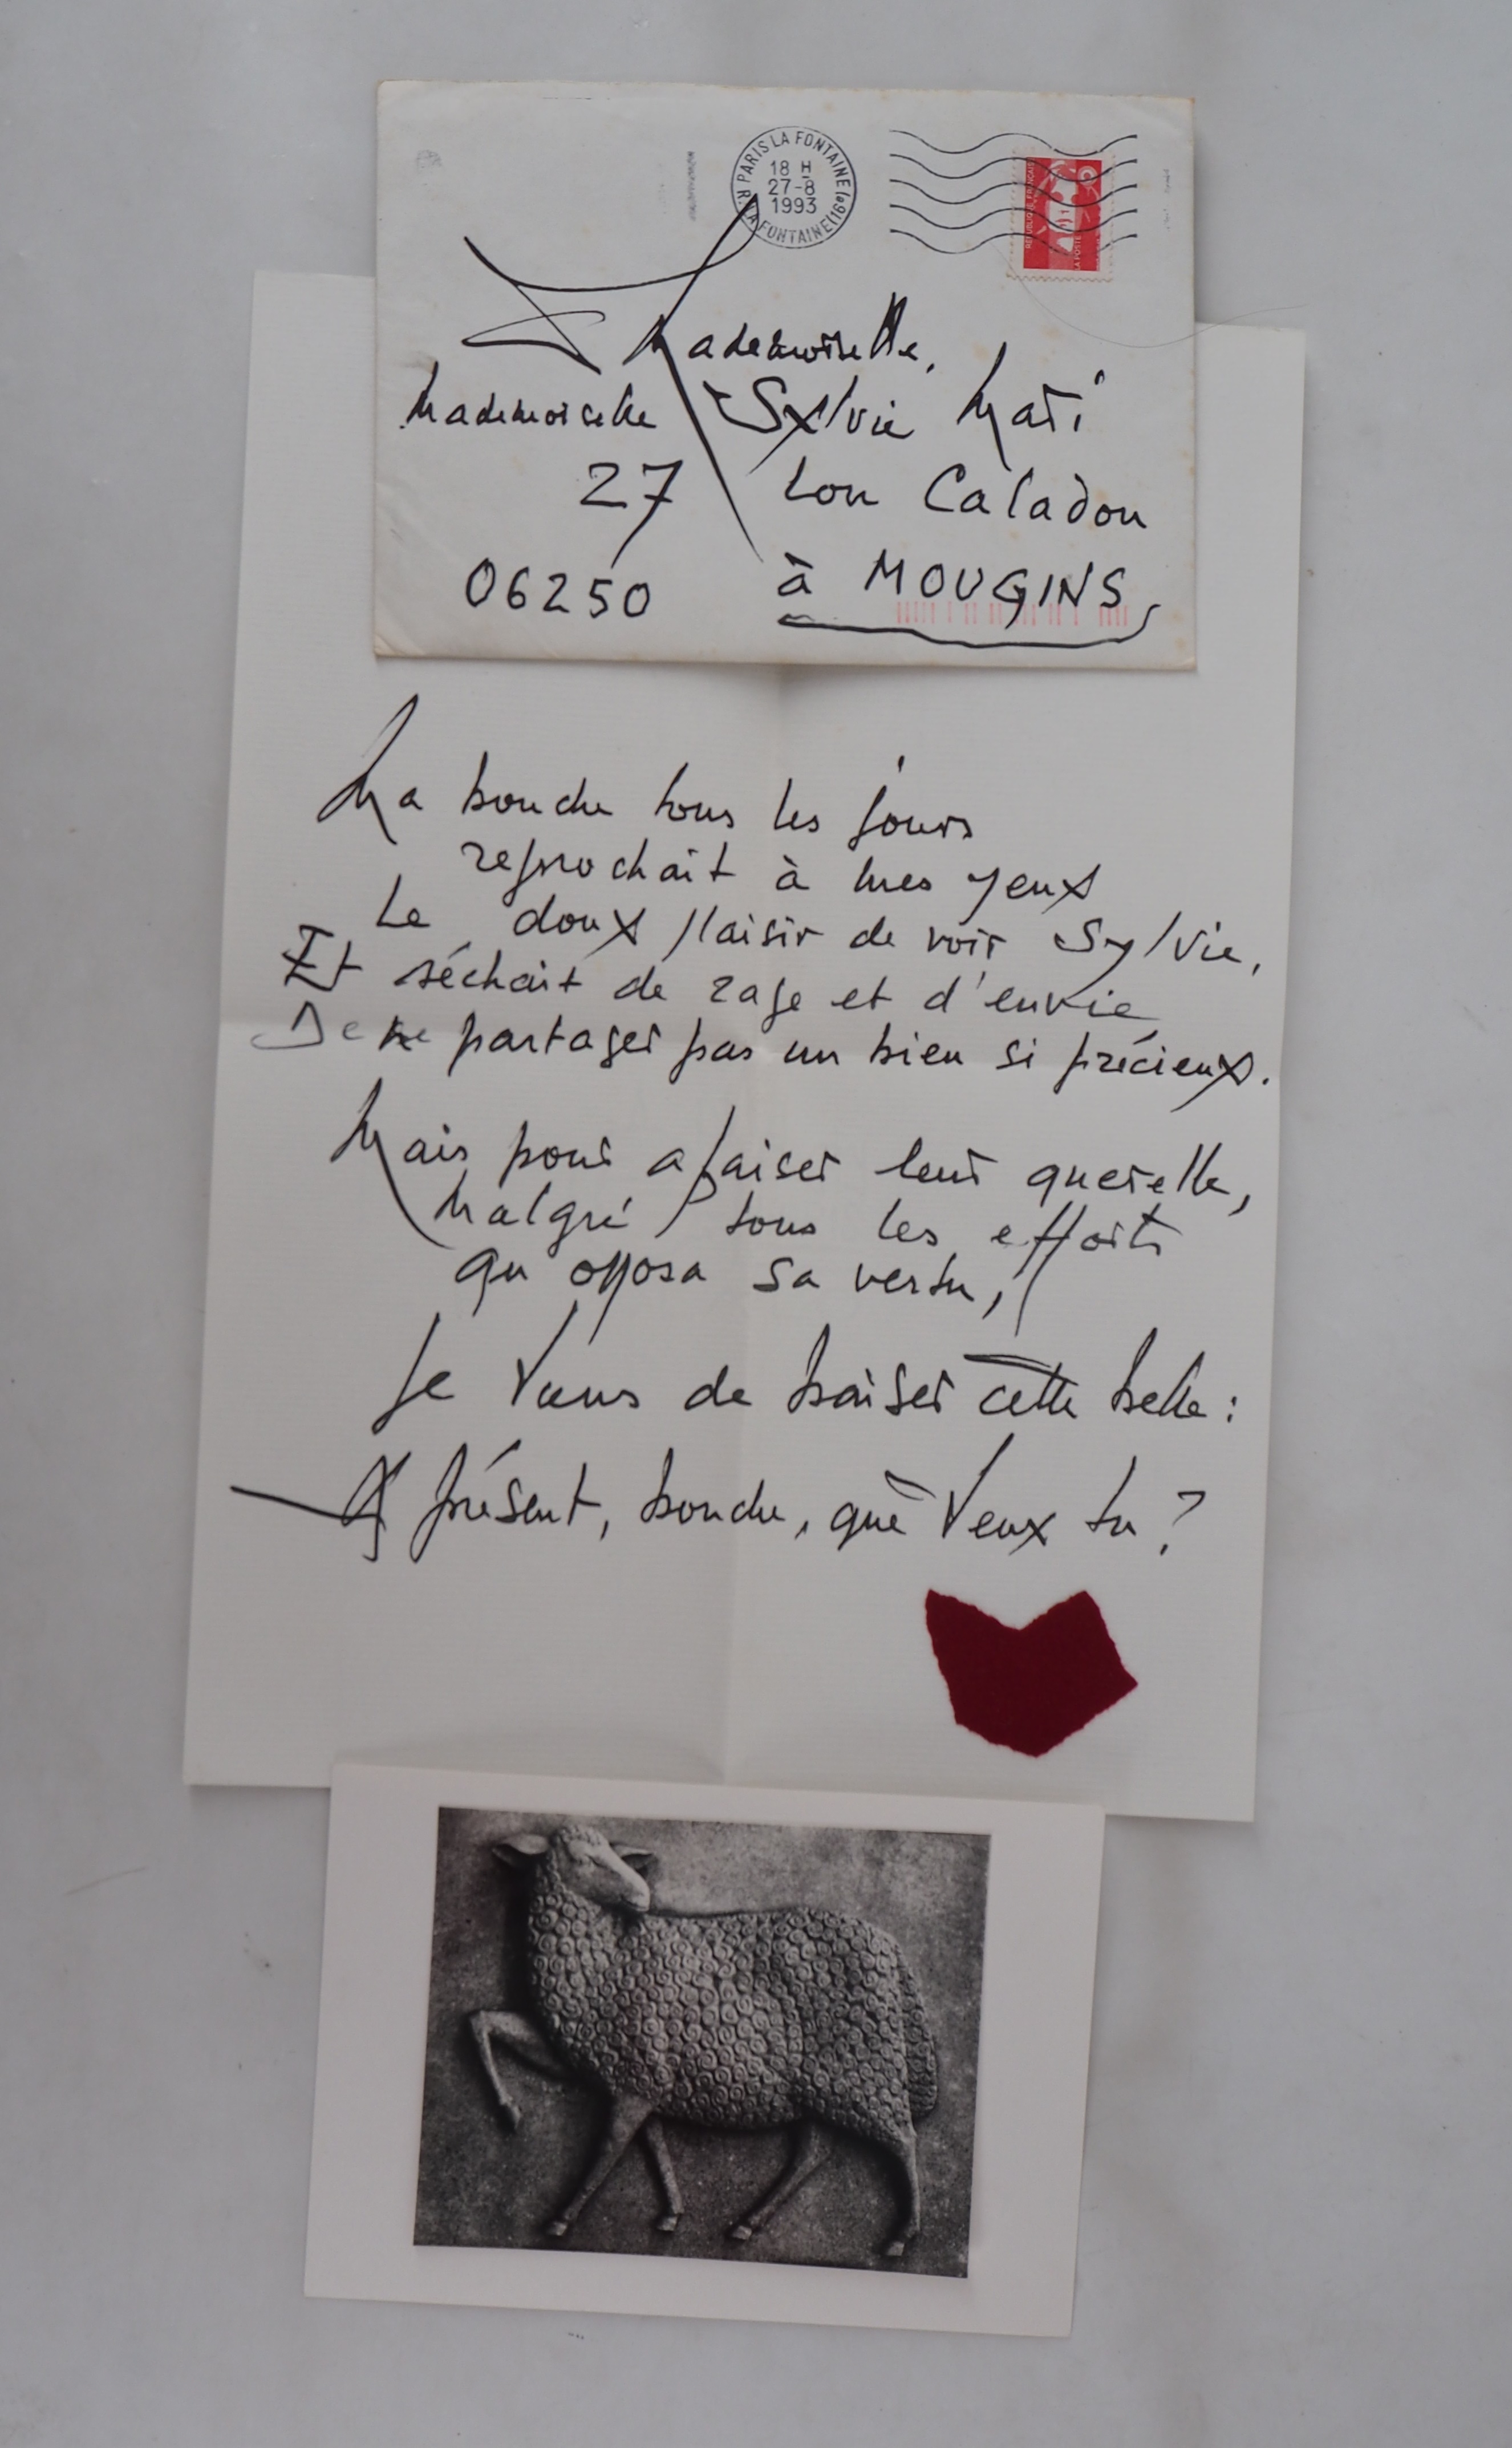 R. PARIS LA FONTAINE (16e)
18 H
27-8
1993
R. LA FONTAINE (16e)
RÉPUBLIQUE FRANÇAISE
LA POSTE
Mademoiselle,
Mademoiselle Sylvie Mati
27 Lou Caladou
06250 à MOUGINS
Ma bouche tous les jours
reprochait à mes yeux
Le doux plaisir de voir Sylvie,
Et séchait de rage et d'envie
De ne partager pas un bien si précieux.
Mais pour apaiser leur querelle,
Malgré tous les efforts
qu'opposa sa vertu,
Je viens de baiser cette belle :
A présent, bouche, que veux tu ?